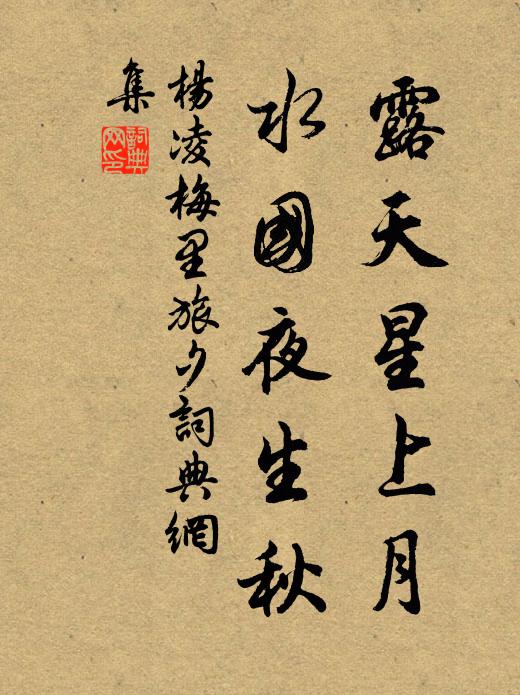 露天星上月
水國夜生秋
楊凌梅里旅夕詞典網
集
詞典
網印